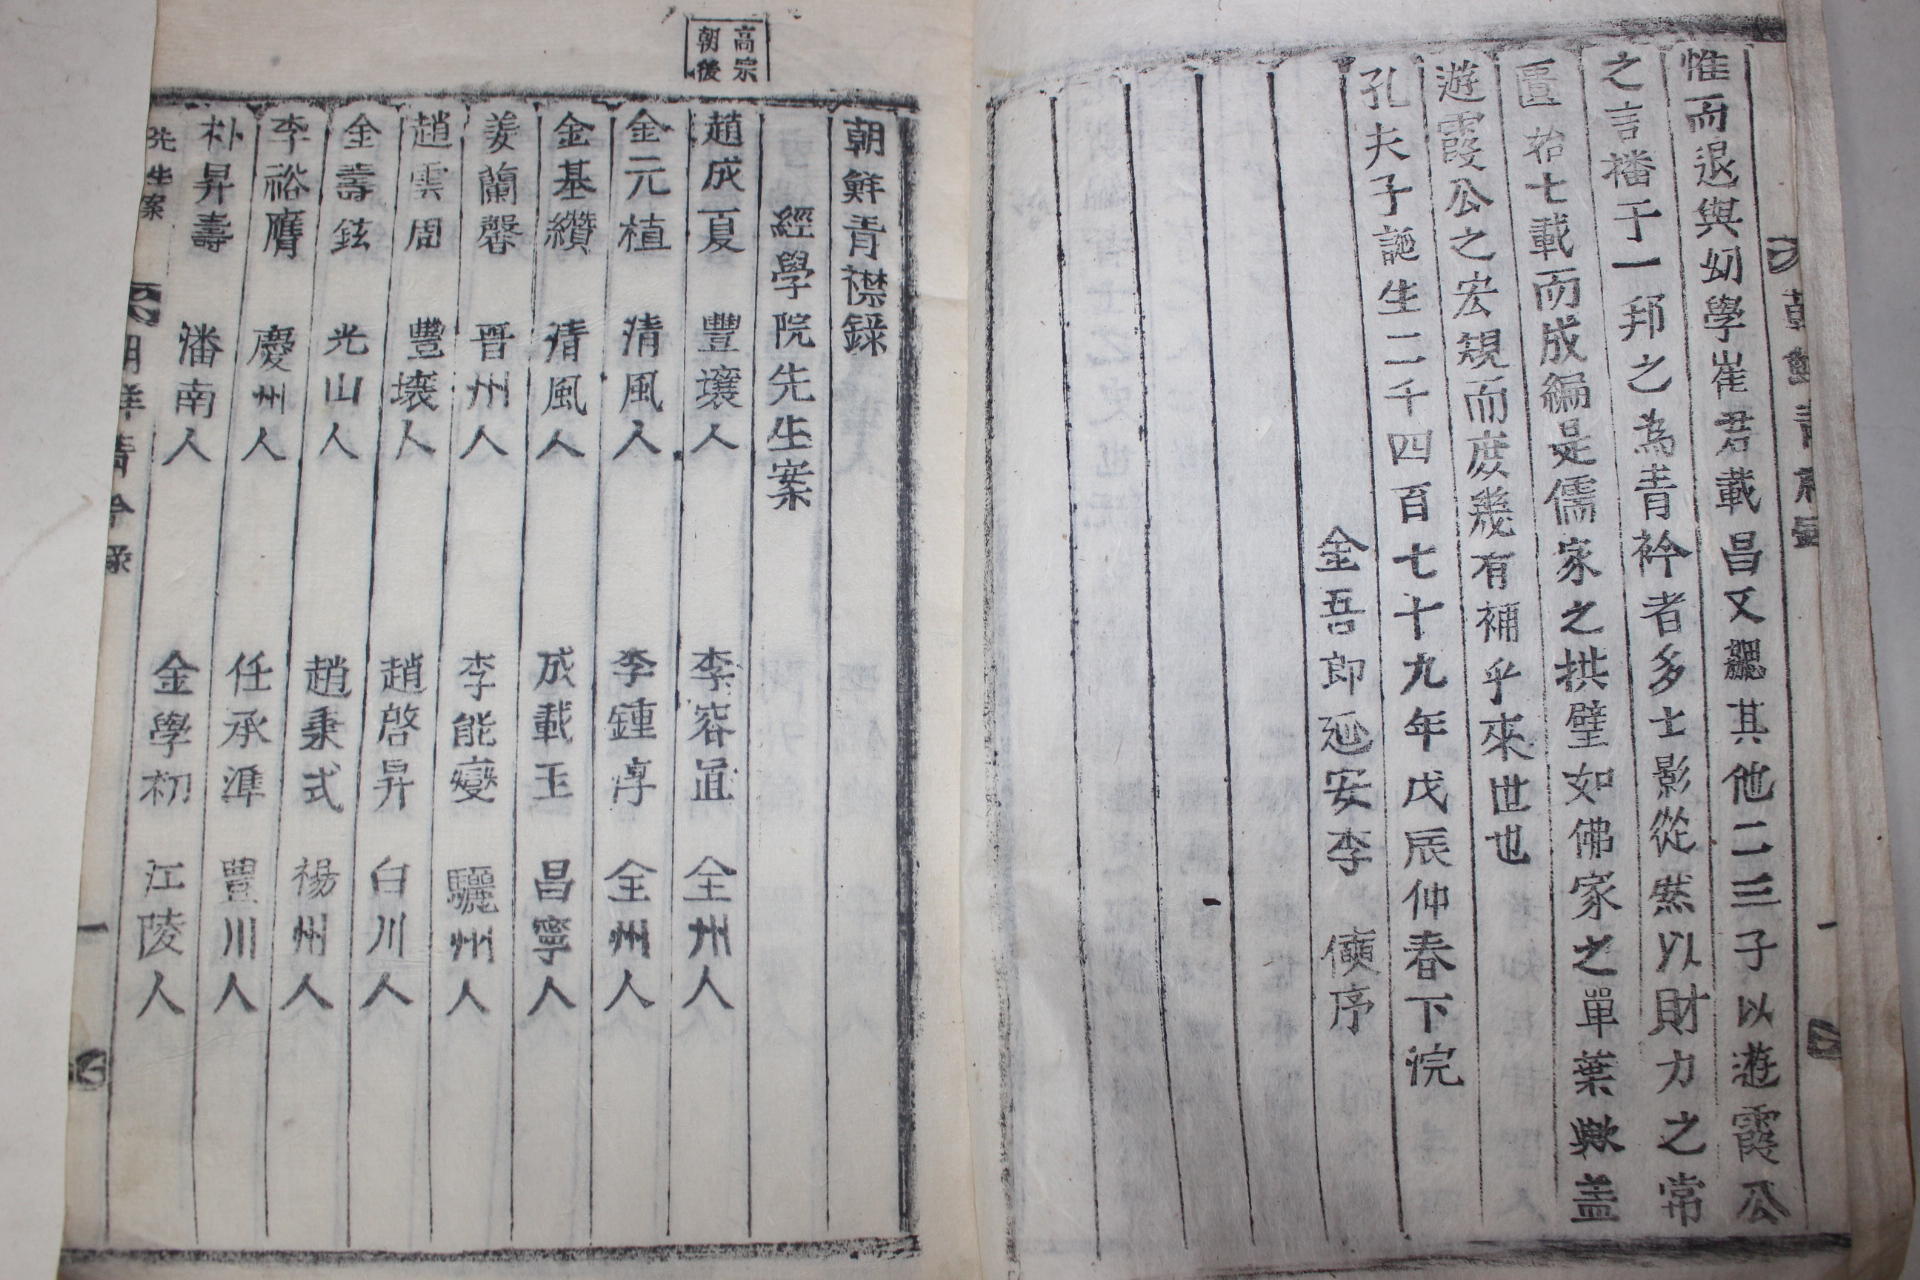 惟而退與幼學崔君載昌又勰其他二三子以遊霞公
之言播于一邦之為青衿者多士影從然以財力之常
匱拾七載而成編是儒家之拱璧如佛家之單葉歟盖
遊霞公之宏規而庶幾有補乎來世也
孔夫子誕生二千四百七十九年戊辰仲春下浣
金吾郎延安李 序
高宗
朝後
朝鮮青襟錄
經學院先生案
趙成夏 豐壤人 李容直 全州人
金元植 清風人 李鍾淳 全州人
金基纘 清風人 成載玉 昌寧人
姜蘭馨 晋州人 李能燮 驪州人
趙雲周 豐壤人 趙啓昇 白川人
金壽鉉 光山人 趙秉式 楊州人
李裕膺 慶州人 任承準 豊川人
朴昇壽 潘南人 金學初 江陵人
先生案 朝鮮青衿錄 一